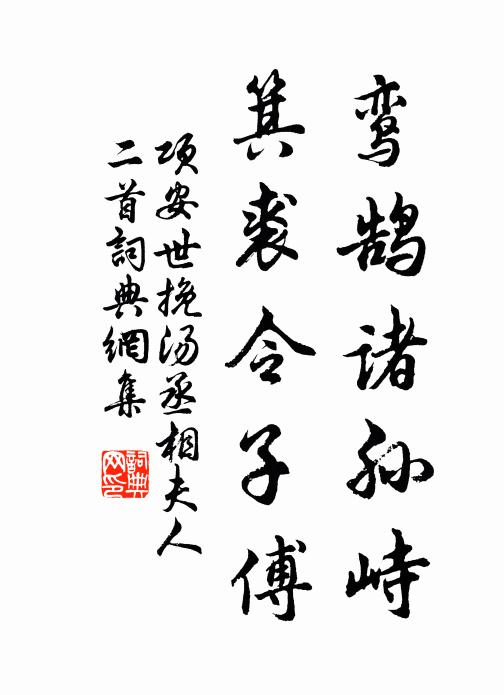 鸾鹄诸孙峙
箕裘令子傅
项安世挽汤丞相夫人
二首詞典網集
詞典
网印